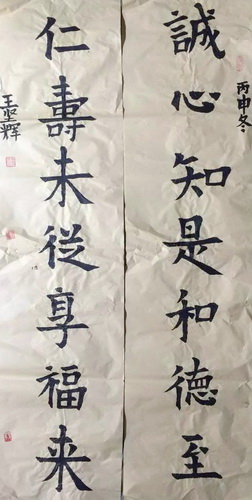 誠心知是和德至
丙申冬
仁壽未從享福来
王 辉